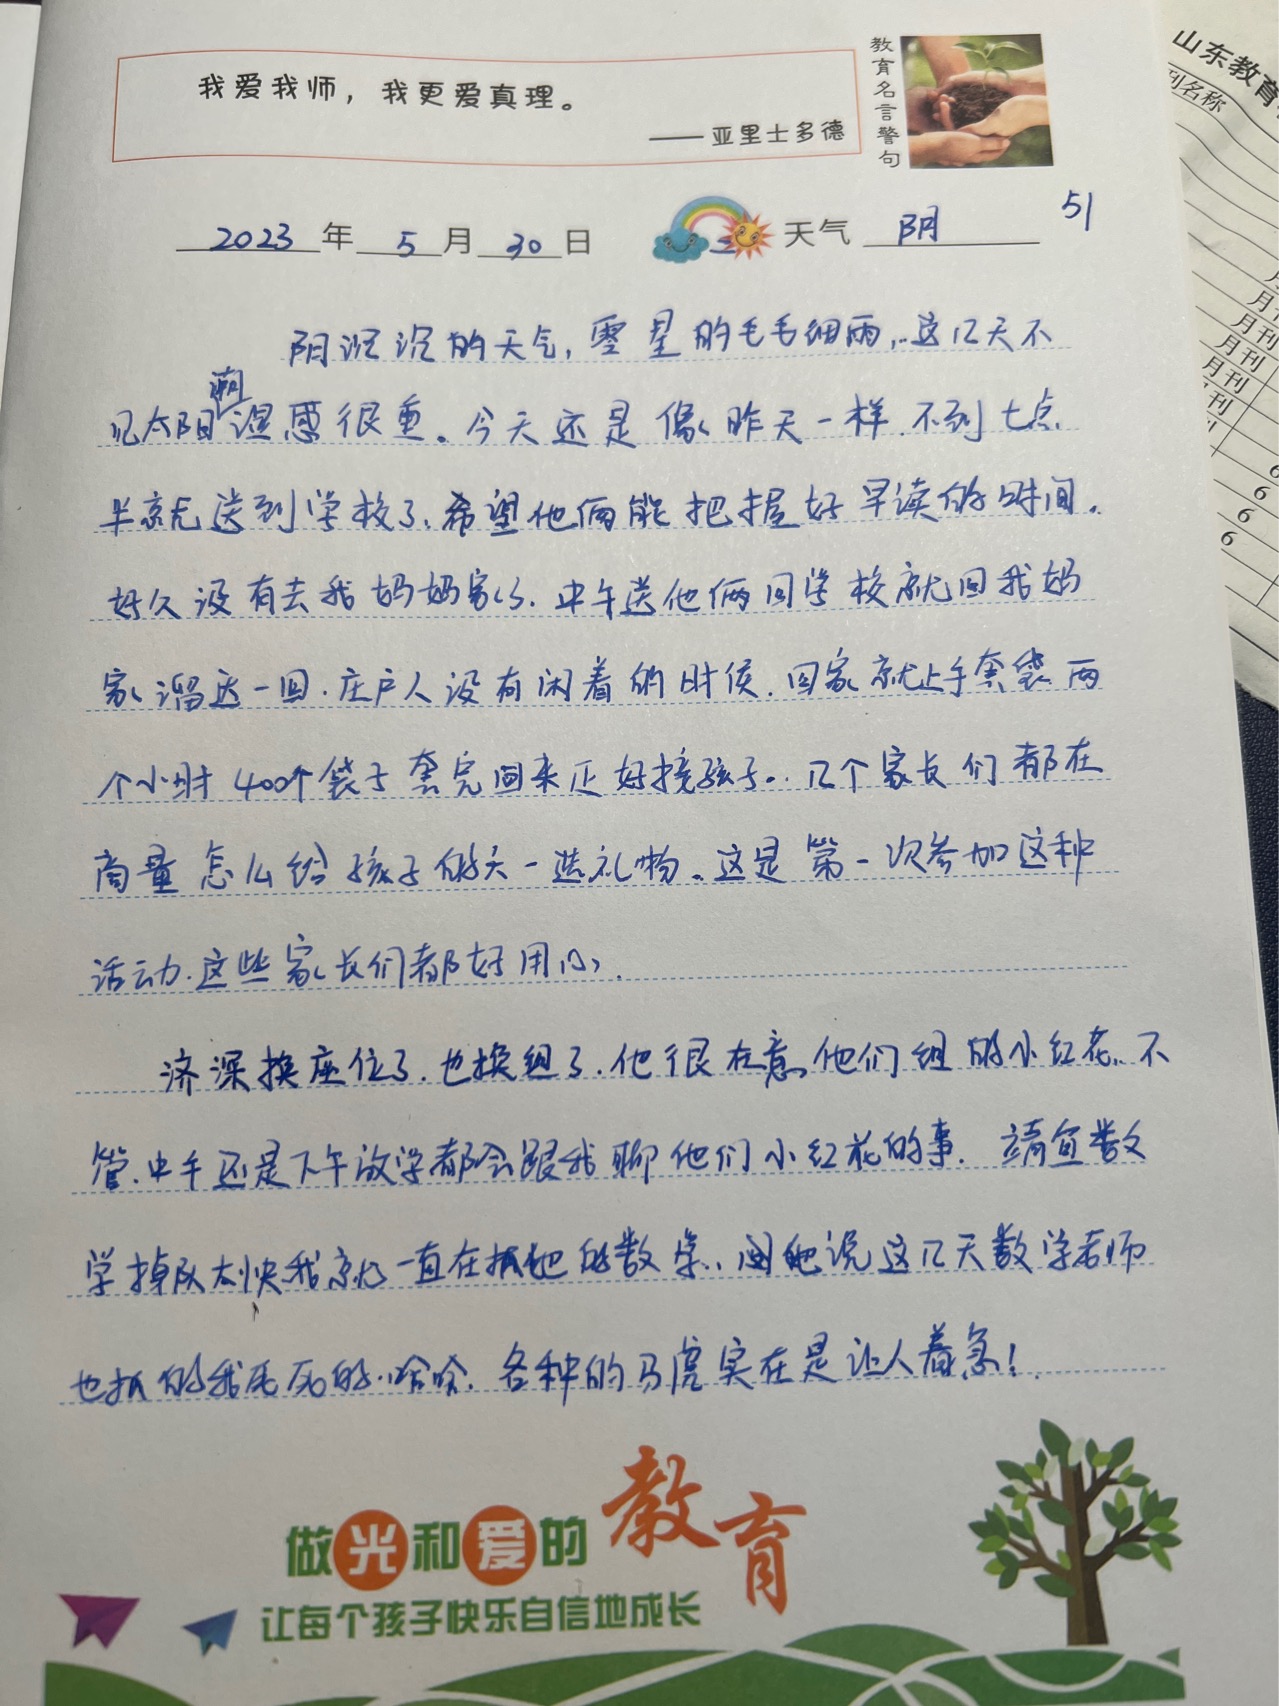 我爱我师，我更爱真理。
——亚里士多德
教育名言警句
山东教育
刊名称
2023年5月30日 天气 阴 51
阴沉沉的天气，零星的毛毛细雨，这几天不
见太阳潮湿感很重。今天还是像昨天一样.不到七点
半就送到学校了.希望他俩能把握好早读的时间.
好久没有去我妈妈家了.中午送他俩回学校就回我妈
家溜达一回.庄户人没有闲着的时侯.回家就上手套袋两
个小时400个袋子套完回来正好接孩子..几个家长们都在
商量怎么给孩子的六一送礼物.这是第一次参加这种
活动.这些家长们都好用心.
济深换座位了.也换组了.他很在意他们组的小红花.不
管.中午还是下午放学都会跟我聊他们小红花的事.
学掉队太快我就一直在抓她的数学..问她说这几天数学老师
也抓的我死死的..哈哈.各种的马虎实在是让人着急!
月刊
月刊
月刊
月刊
6
6
6
6
做光和爱的教育
让每个孩子快乐自信地成长